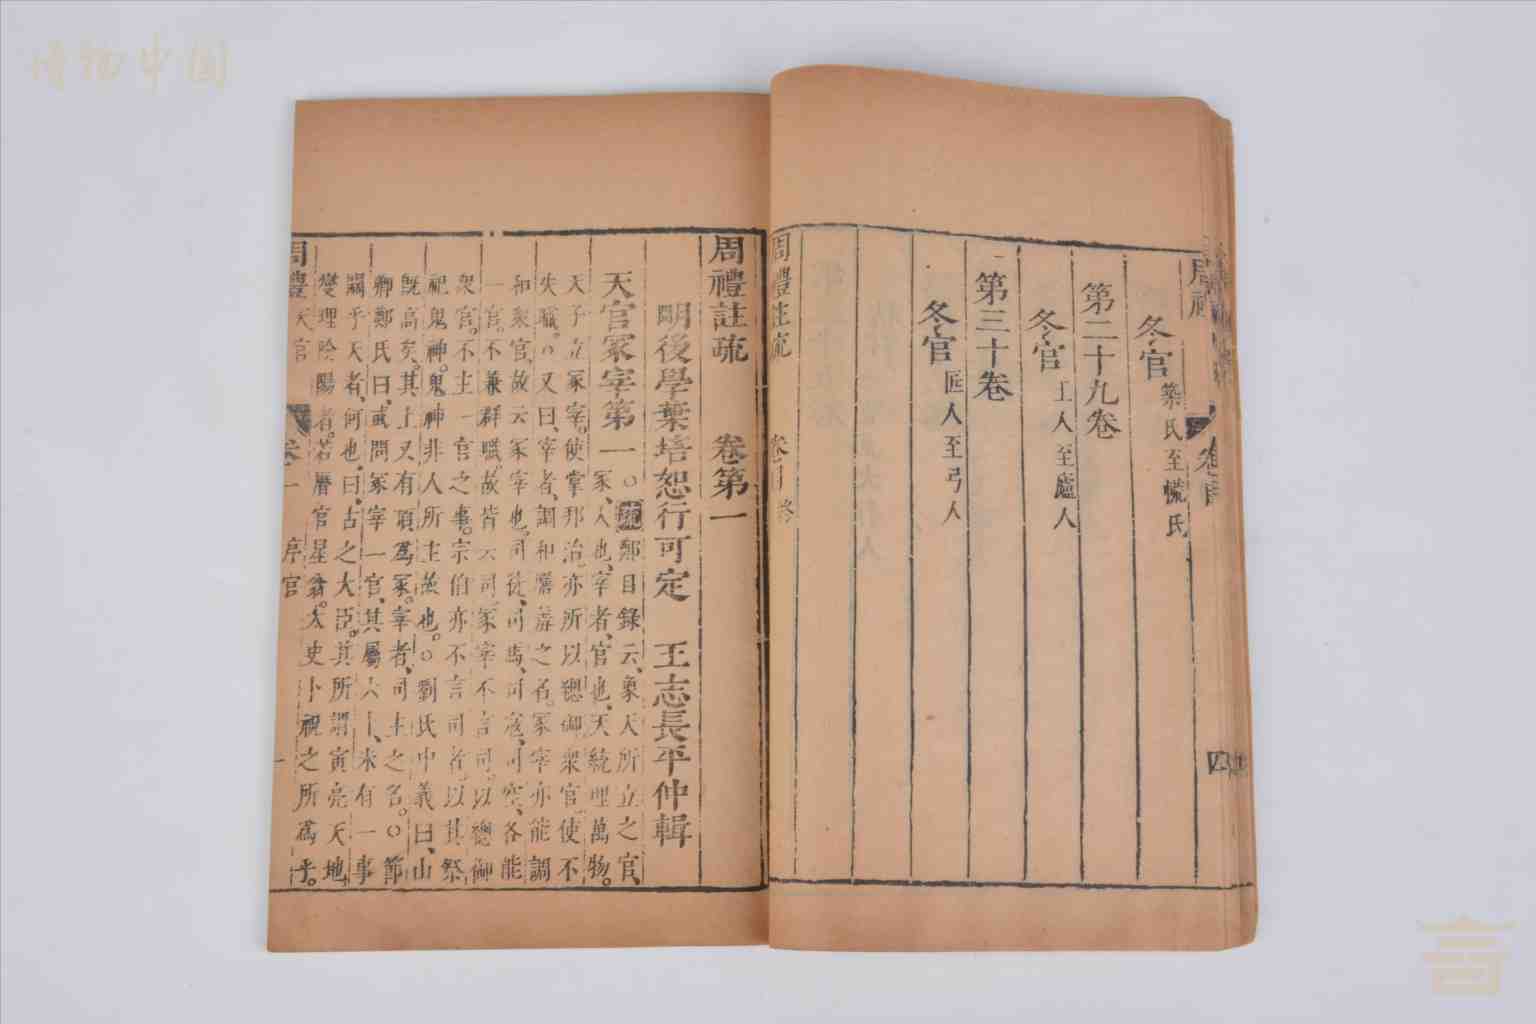 周禮 卷目 四
冬官 築氏至慌氏
第二十九卷
冬官 王人至廬人
第三十卷
冬官 匠人至弓人
周禮註疏 卷目終
周禮註疏 卷第一
明後學葉培恕行可定 王志長平仲輯
天官冢宰第一○疏鄭目錄云、象天所立之官、
冢、大也、宰者、官也、天統理萬物。
天子立冢宰。使掌邦治亦所以總御衆官。使不
失職。○又曰、宰者、調和膳羞之名。冢宰亦能調
和衆官。故云冢宰也。司徒、司馬、司寇、司空、各能
一官。不兼群職。故皆云司。冢宰不言司。以總御
衆官。不主一官之事。宗伯亦不言司者。以其祭
祀鬼神。鬼神非人所主故也。○劉氏中義曰、山
旣高矣。其上又有頂爲冢。宰者、司主之名。○節
卿鄭氏曰、或問冢宰一官、其屬六十、未有一事
關乎天者、何也、曰、古之大臣。其所謂寅亮天地、
燮理陰陽者。若曆官星翁。太史卜祝之所爲乎。
周禮 天官 卷一 序官 一
博物中國